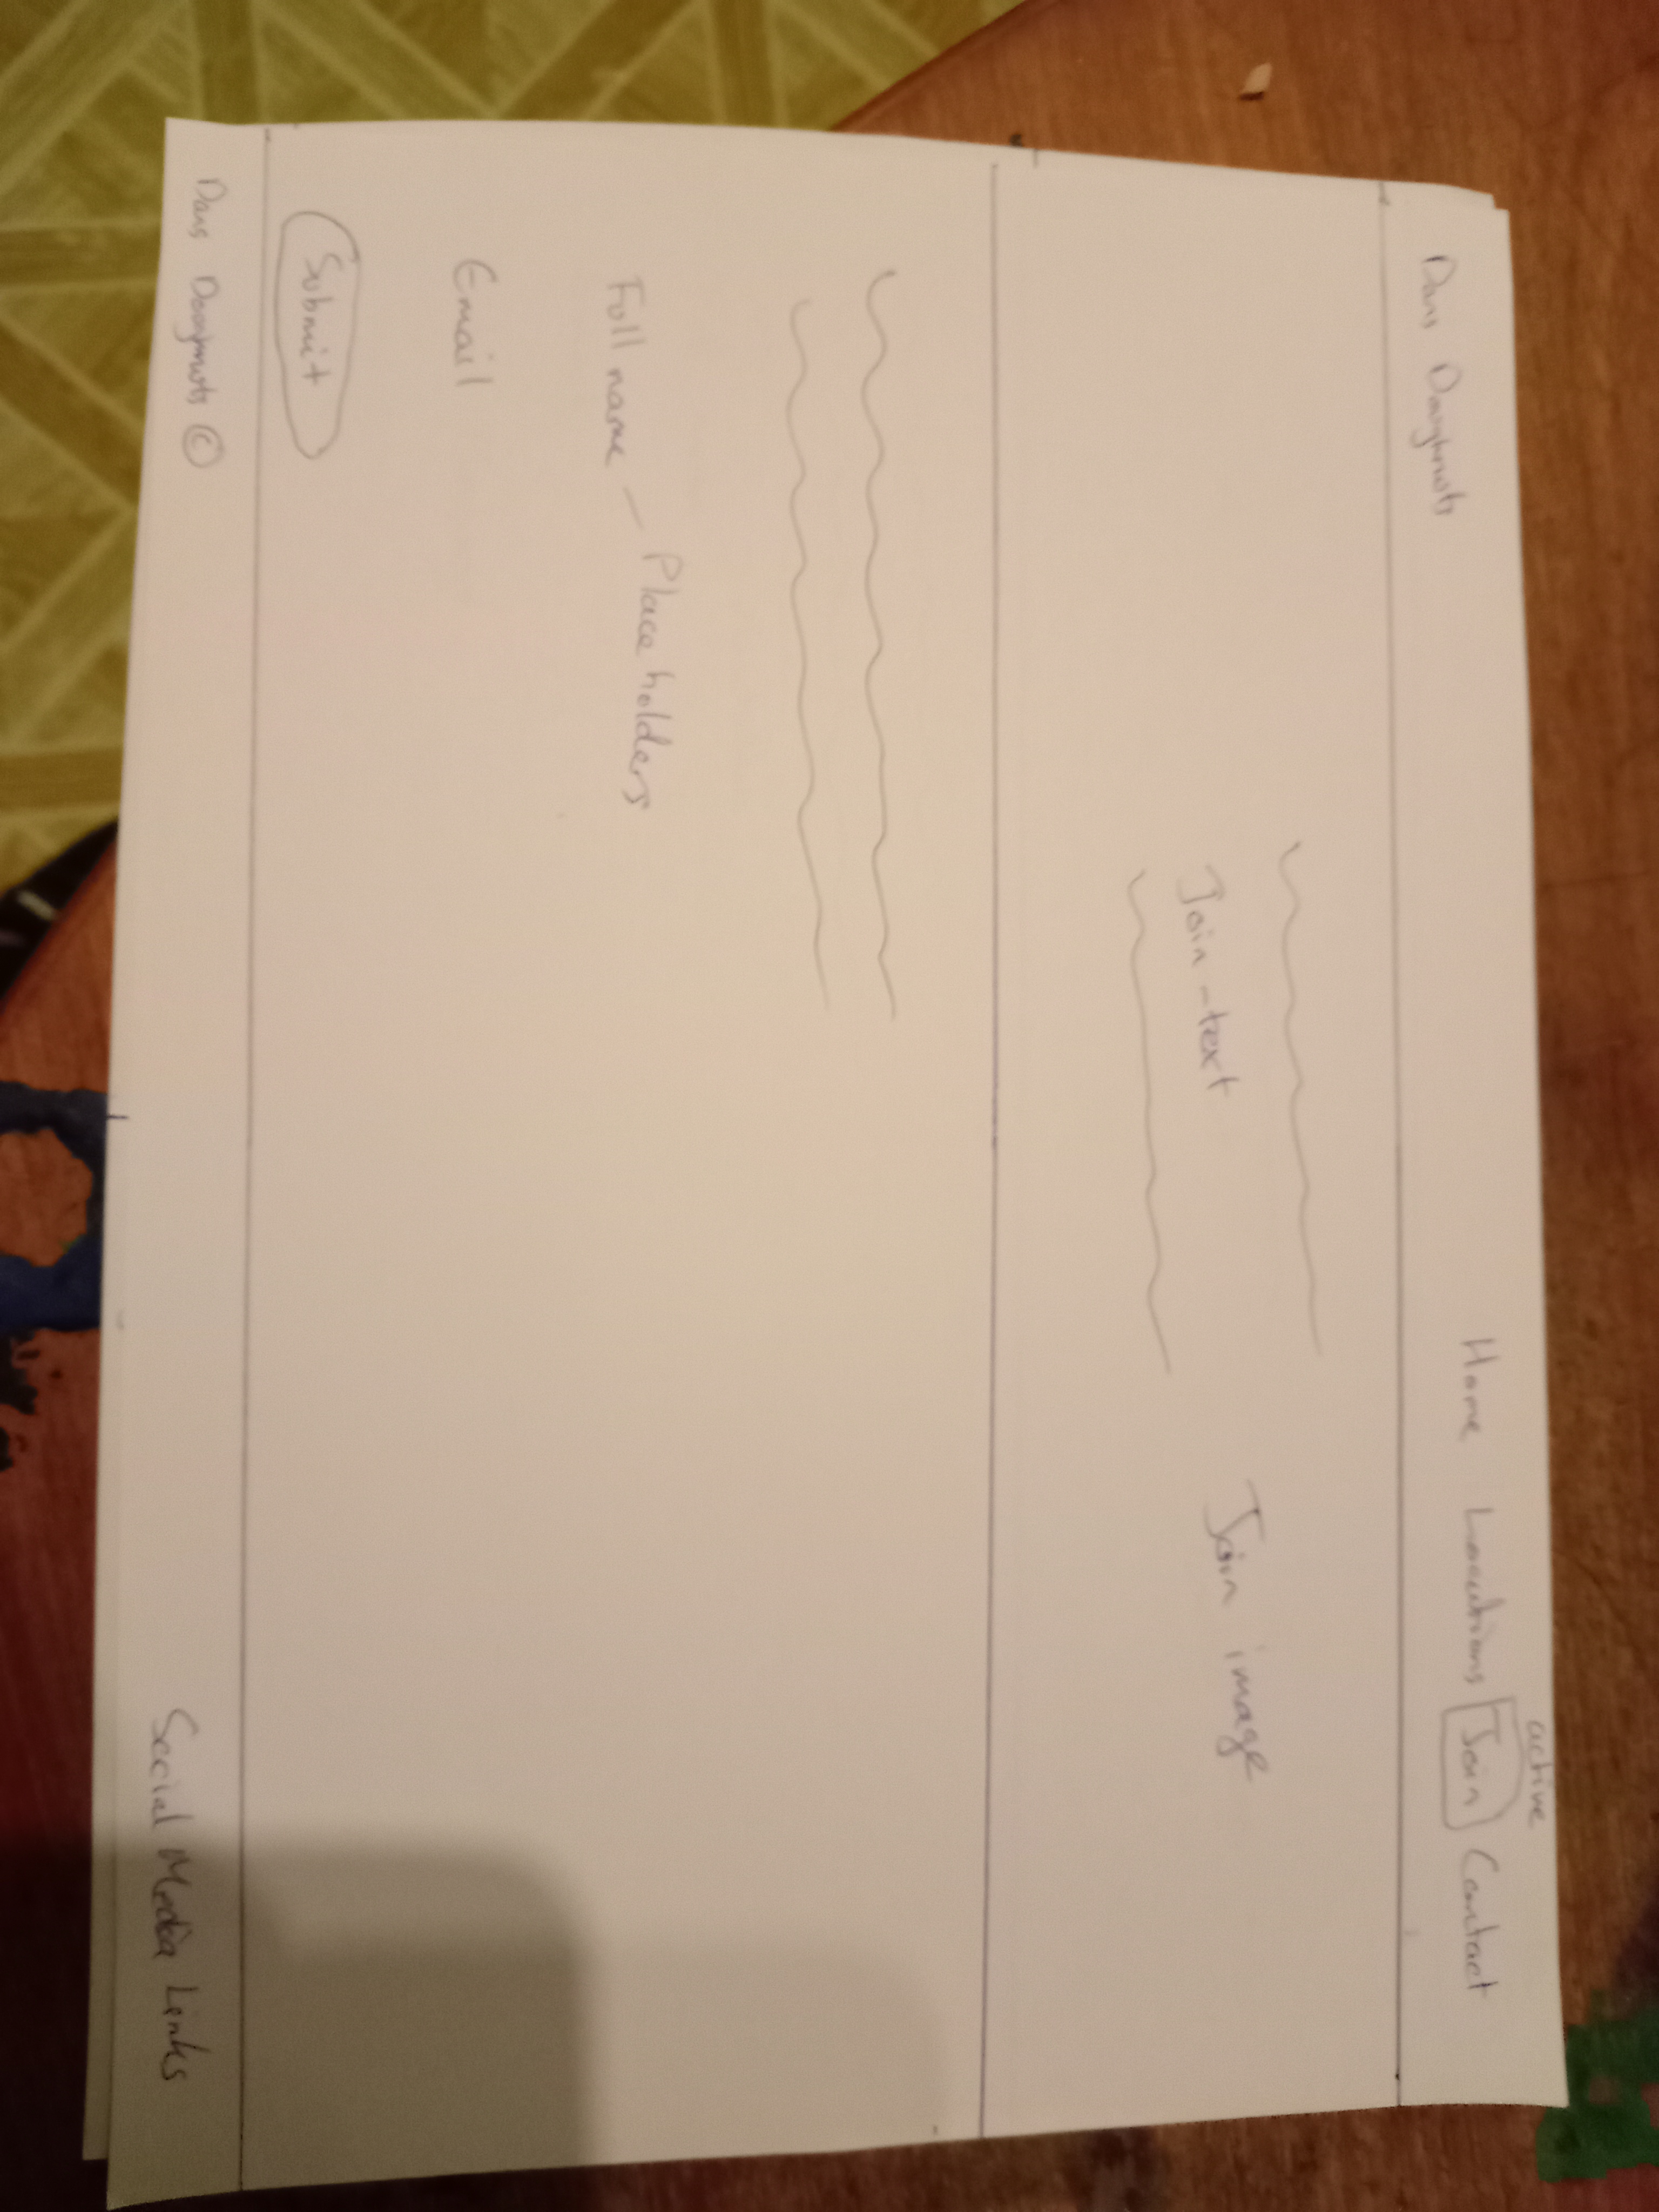 active
Dans Doughnuts Home Locations Join Contact
Join-text Join image
Full name - Placeholders
Email
Submit
Dans Doughnuts © Social Media Links